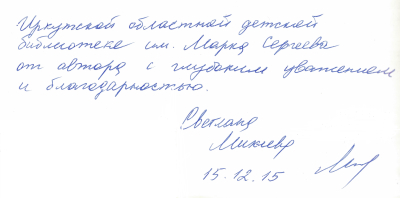 Иркутской областной детской
библиотеке им. Марка Сергеева
от автора с глубоким уважением
и благодарностью.
Светлана
Михеева
15.12.15